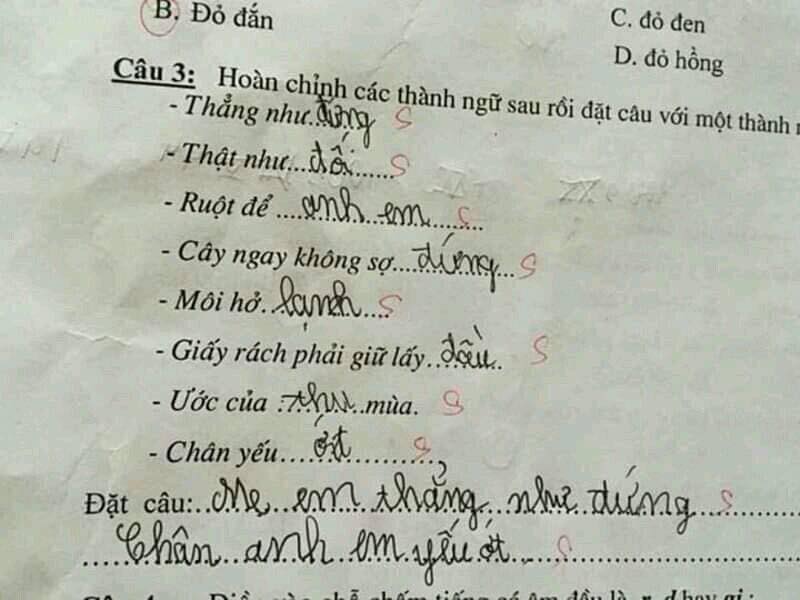 B. Đỏ đắn
C. đỏ đen
D. đỏ hồng
Câu 3: Hoàn chỉnh các thành ngữ sau rồi đặt câu với một thành
- Thẳng như..đứng S
- Thật như...đối...... S
- Ruột để ....anh em....... S
- Cây ngay không sợ....đứng... S
- Môi hở..lạnh.... S
- Giấy rách phải giữ lấy..đầu.. S
- Ước của ..thu..mùa. S
- Chân yếu....ớt......... S
Đặt câu:..Mẹ..em thẳng..như..dứng.... S
.....Chân..anh em yếu ớt..... S
Điền vào chỗ chấm tiếng có âm đầu là r, d hay gi :